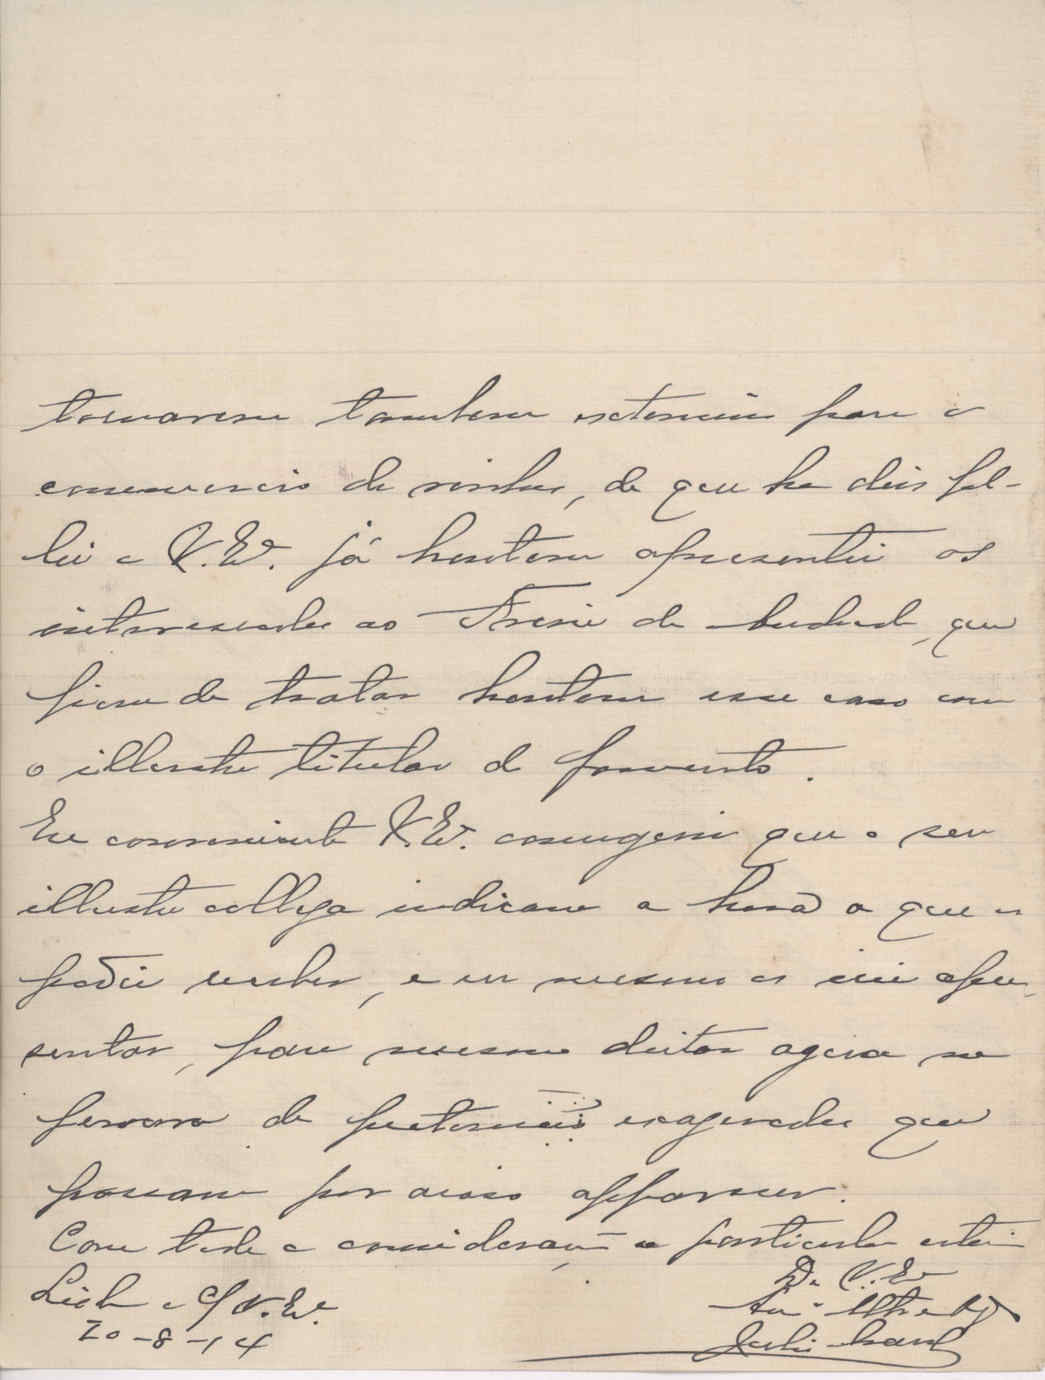 tornarem tambem extensiva para o
commercio de vinhos, de que ha dias fal-
lei a V. Ex. já hontem apresentei os
interessados ao Freire de Andrade, que
ficou de tratar hontem esse caso com
o illustre titular do fomento.
Era conveniente V. Ex. conseguir que o seu
illustre collega indicasse a hora a que os
podia receber, e eu mesmo os irei apre-
sentar, para mesmo deitar agua na
fervura de pretensões exageradas que
possam por acaso apparecer.
Com toda a consideração e particular estima
De V. Ex.
Lisboa c/ V. Ex.
20-8-14